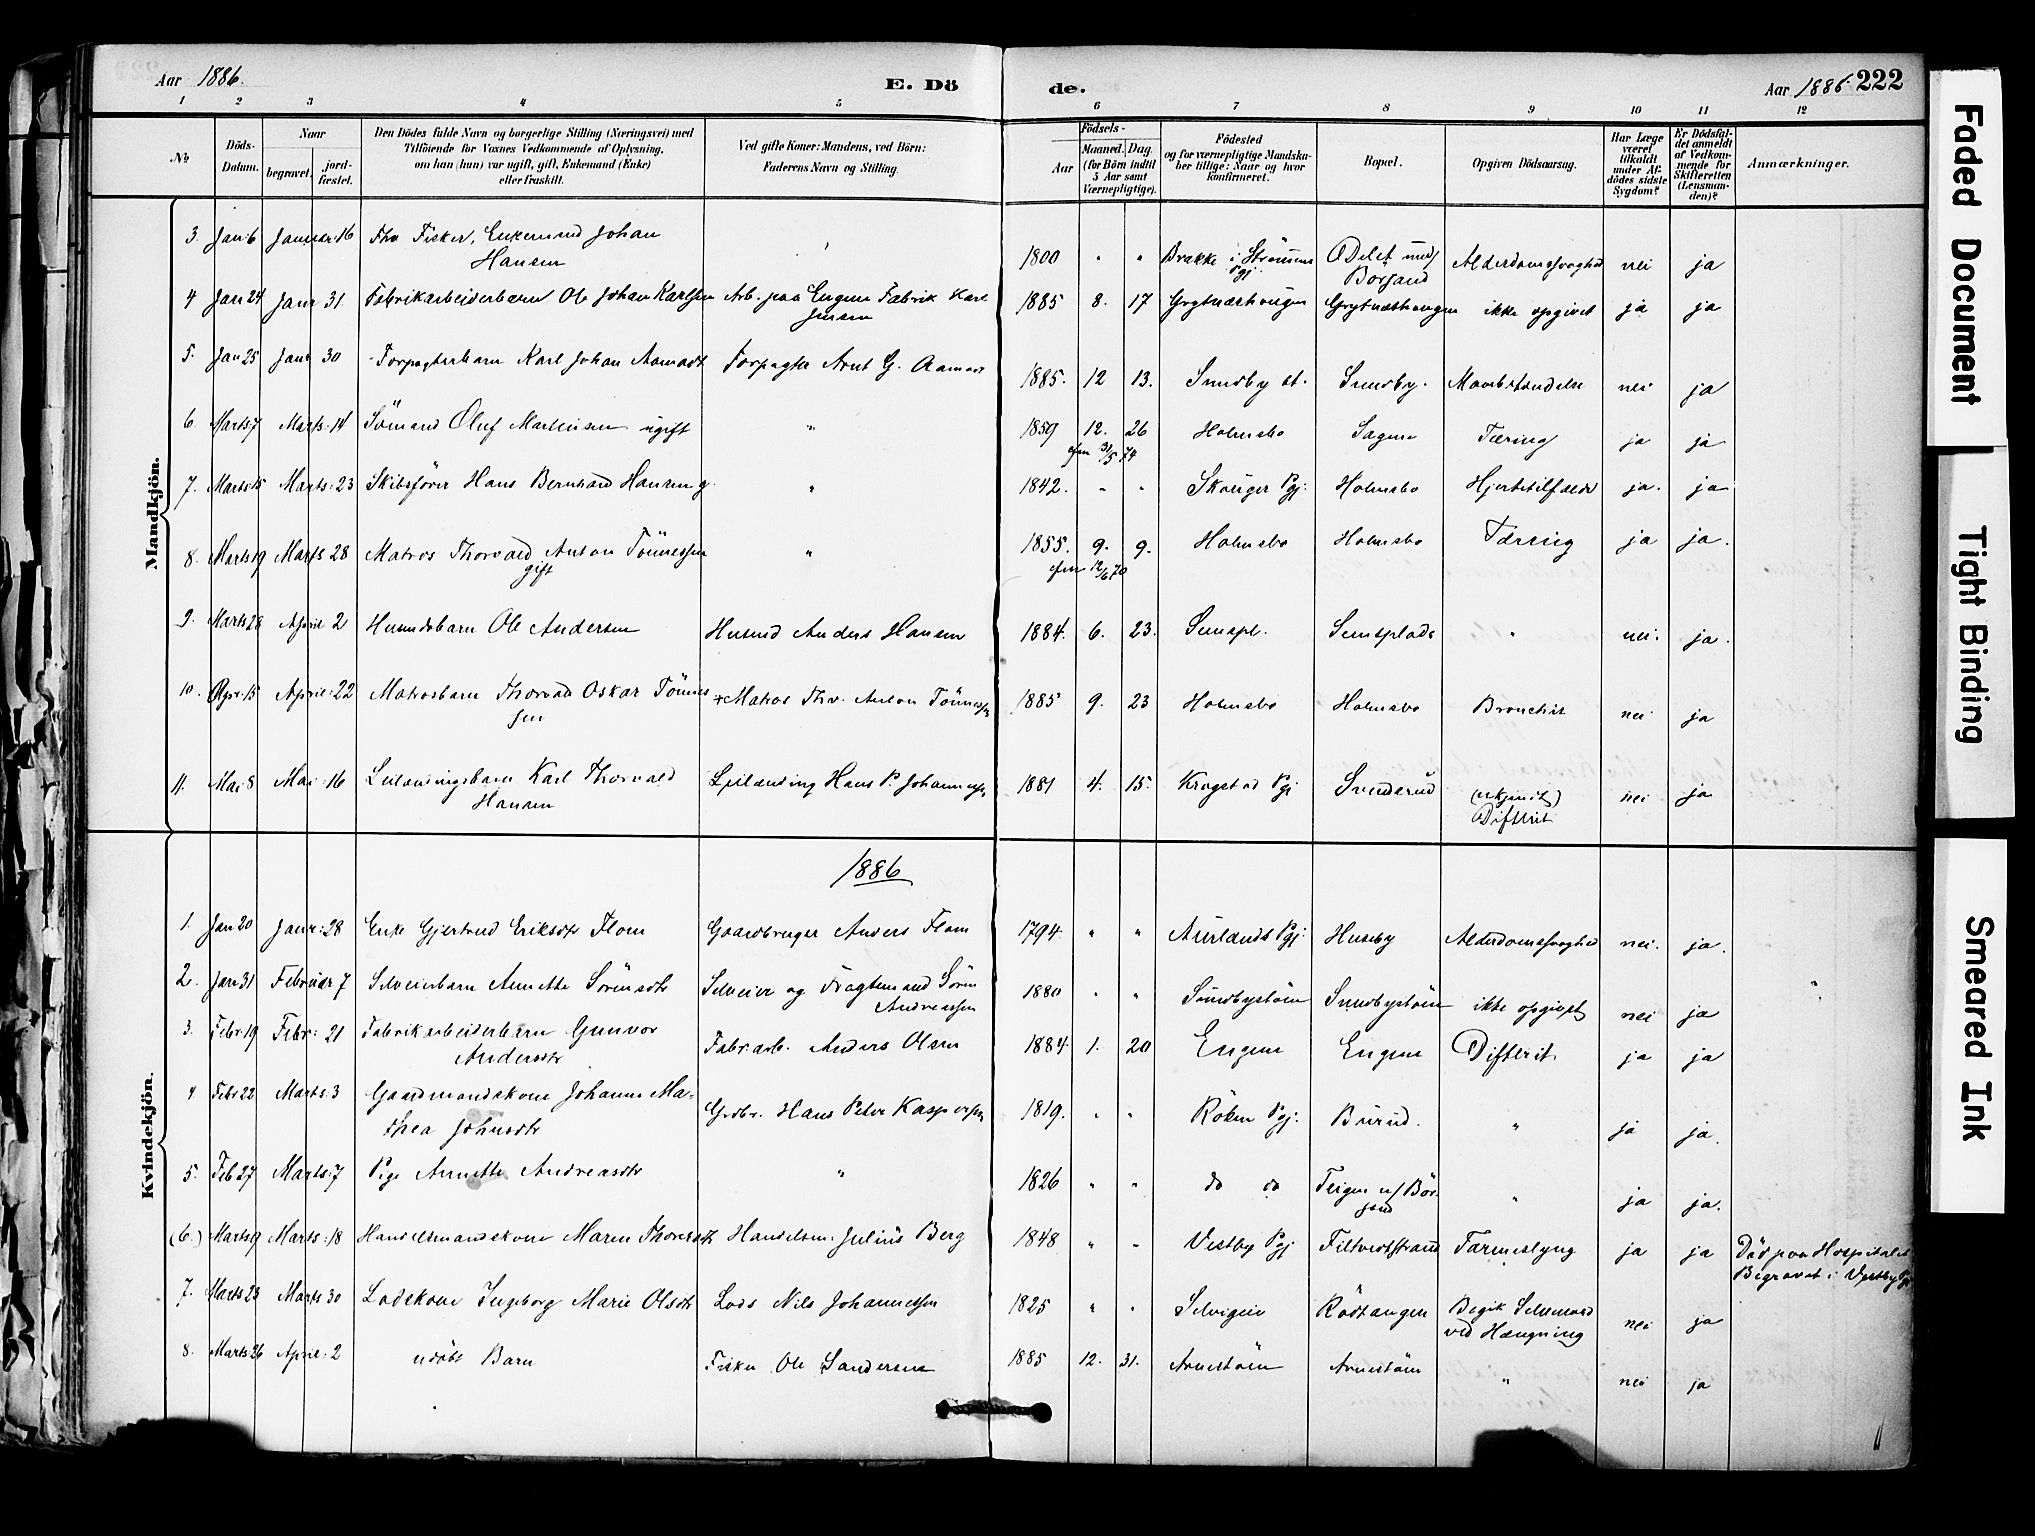 Aar 1886. E. Dö de. Aar 1886. 222
1 2 3 4 5 6 7 8 9 10 11 12
No
Döds-Datum.
Naar
begravet.
jord-fæstet.
Den Dödes fulde Navn og borgerlige Stilling (Næringsvei) med
Tilföiende for Voxnes Vedkommende af Oplysning,
om han (hun) var ugift, gift, Enkemand (Enke)
eller fraskilt.
Ved gifte Koner: Mandens, ved Börn:
Faderens Navn og Stilling.
Födsels-
Aar
Maaned. Dag.
(for Börn indtil
5 Aar samt
Værnepligtige).
Födested
og for værnepligtige Mandska-
ber tillige: Naar og hvor
konfirmeret.
Bopæl.
Opgiven Dödsaarsag.
Har Læge
været
tilkaldt
under Af-
dödes sidste
Sygdom?
Er Dödsfal-
det anmeldt
af Vedkom-
mende for
Skifteretten
(Lensman-
den)?
Anmærkninger.
Mandkjön.
3. Jan: 6 Januar: 16 Fhv Fisker, Enkemand Johan
Hansen 1800 " " Brække i Strömms Pgj. Ödelet und/ Borsand Alderdomssvaghed nei ja
4 Jan 24 Janr 31. Fabrikarbeiderbarn Ole Johan Karlsen Arb. paa Engene Fabrik Karl
Jensen 1885 8. 17 Grytnæshougen Grytnæshaugen ikke opgivet ja ja
5. Jan 25 Janr 30 Forpagterbarn Karl Johan Aamodt Forpagter Arnt G. Aamodt 1885. 12 13. Sundby st. Sundby. nei ja
6. Marts 7 Marts: 14 Sömand Oluf Martinsen ugift " 1859 12. 26 Holmsbo Sagene Tæring ja ja
cfm 31/5 74
7. Marts: 15 Marts: 23 Skibsförer Hans Bernhard Hansen g. " 1842. " " Skouger Pgj. Holmsbo Hjertetilfælde ja. ja
8. Marts 19 Marts 28 Matros Thorvald Anton Tönnessen
gift " 1855. 9. 9. Holmsbo Holmsbo Tæring ja ja.
cfm 12/6 70
9. Marts 28 April 2 Husmdsbarn Ole Andersen Husmd Anders Hansen 1884. 6. 23. " nei. ja.
10. Apr: 15 April: 22 Matrosbarn Thorvald Oskar Tönnes
sen + Matros Thv. Anton Tönnessen 1885 9. 23 Holmsbo Holmsbo Bronchit nei ja
11. Mai: 8 Mai: 16 Leilændingsbarn Karl Thorvald
Hansen Leilænding Hans P. Johannessen 1881 4. 15. Krogstad Pgj Svinderud
Difterit nei ja
1886
Kvindekjön.
1. Jan 20 Janr: 28 Enke Gjertrud Eriksdtr Flom Gaardbruger Anders Flom 1794. " " Aurlands Pgj. Huseby Alderdomssvaghed nei. ja.
2. Jan 31 Februar 7 Selveierbarn Annette Sörensdtr Selveier og Fragtemand Sören
Andreassen 1880 " " Sundbystöen Sundbystöen ikke opgivet nei ja "
3. Febr. 19 Febr: 21 Fabrikarbeiderbarn Gunvor
Andersdtr Fabr.arb. Anders Olsen 1884. 1. 20 Engene Engene Difterit ja ja
4 Febr 22 Marts: 3 Gaardmandskone Johanne Ma-
thea Johnsdtr Grdbr. Hans Peter Kaspersen 1819. " " Röken Pgj. Burud. " ja ja.
5. Feb 27 Marts: 7 Pige Annette Andreasdtr " 1826 " " do do Teigen u/ Bör-
sand " ja ja.
(6.) Marts 9 Marts: 18 Handelsmandskone Maren Thoresdtr Handelsm. Julius Berg 1848 " " Vestby Pgj Filtvedtstrand Tarmeslyng ja ja Död paa Hospitalet
Begravet i Vestby Pgj
7. Marts 23 Marts 30 Lodskone Ingeborg Marie Olsdtr Lods Nils Johannessen 1825 " " Selvigen Rödtangen Begik Selvmord
ved Hængning nei ja
8. Marts 26 April: 2 udöbt Barn Fisker Ole Sandersen 1885 12. 31. Arnestöen Arnestöen " nei ja
Faded Document
Tight Binding
Smeared Ink